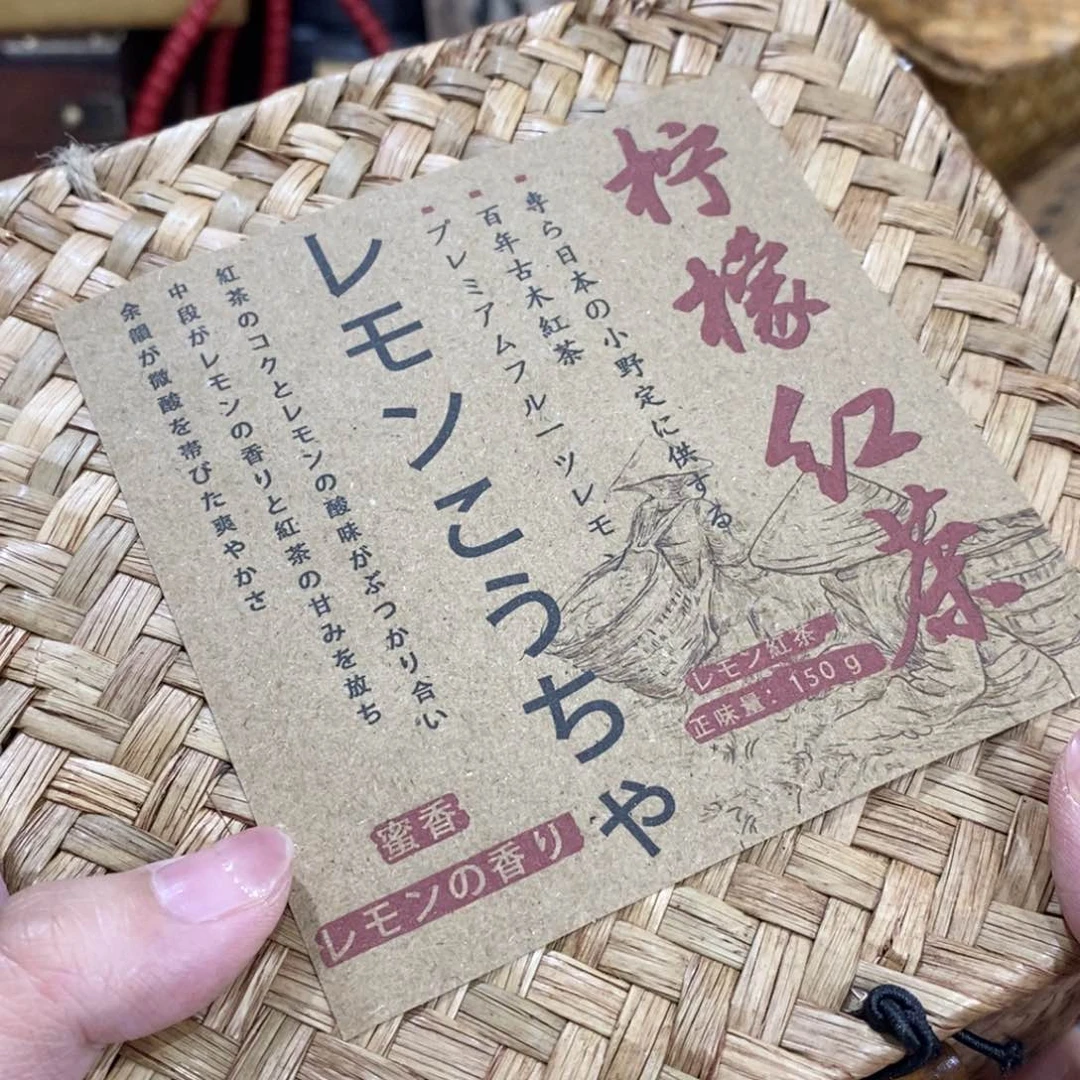 柠檬红茶
専ら日本の小野定に供する
百年古木紅茶
プレミアムフルーツレモン
レモンこうちゃ
紅茶のコクとレモンの酸味がぶつかり合い
中段がレモンの香りと紅茶の甘みを放ち
余韻が微酸を帯びた爽やかさ
レモン紅茶
正味量：150 g
蜜香
レモンの香り